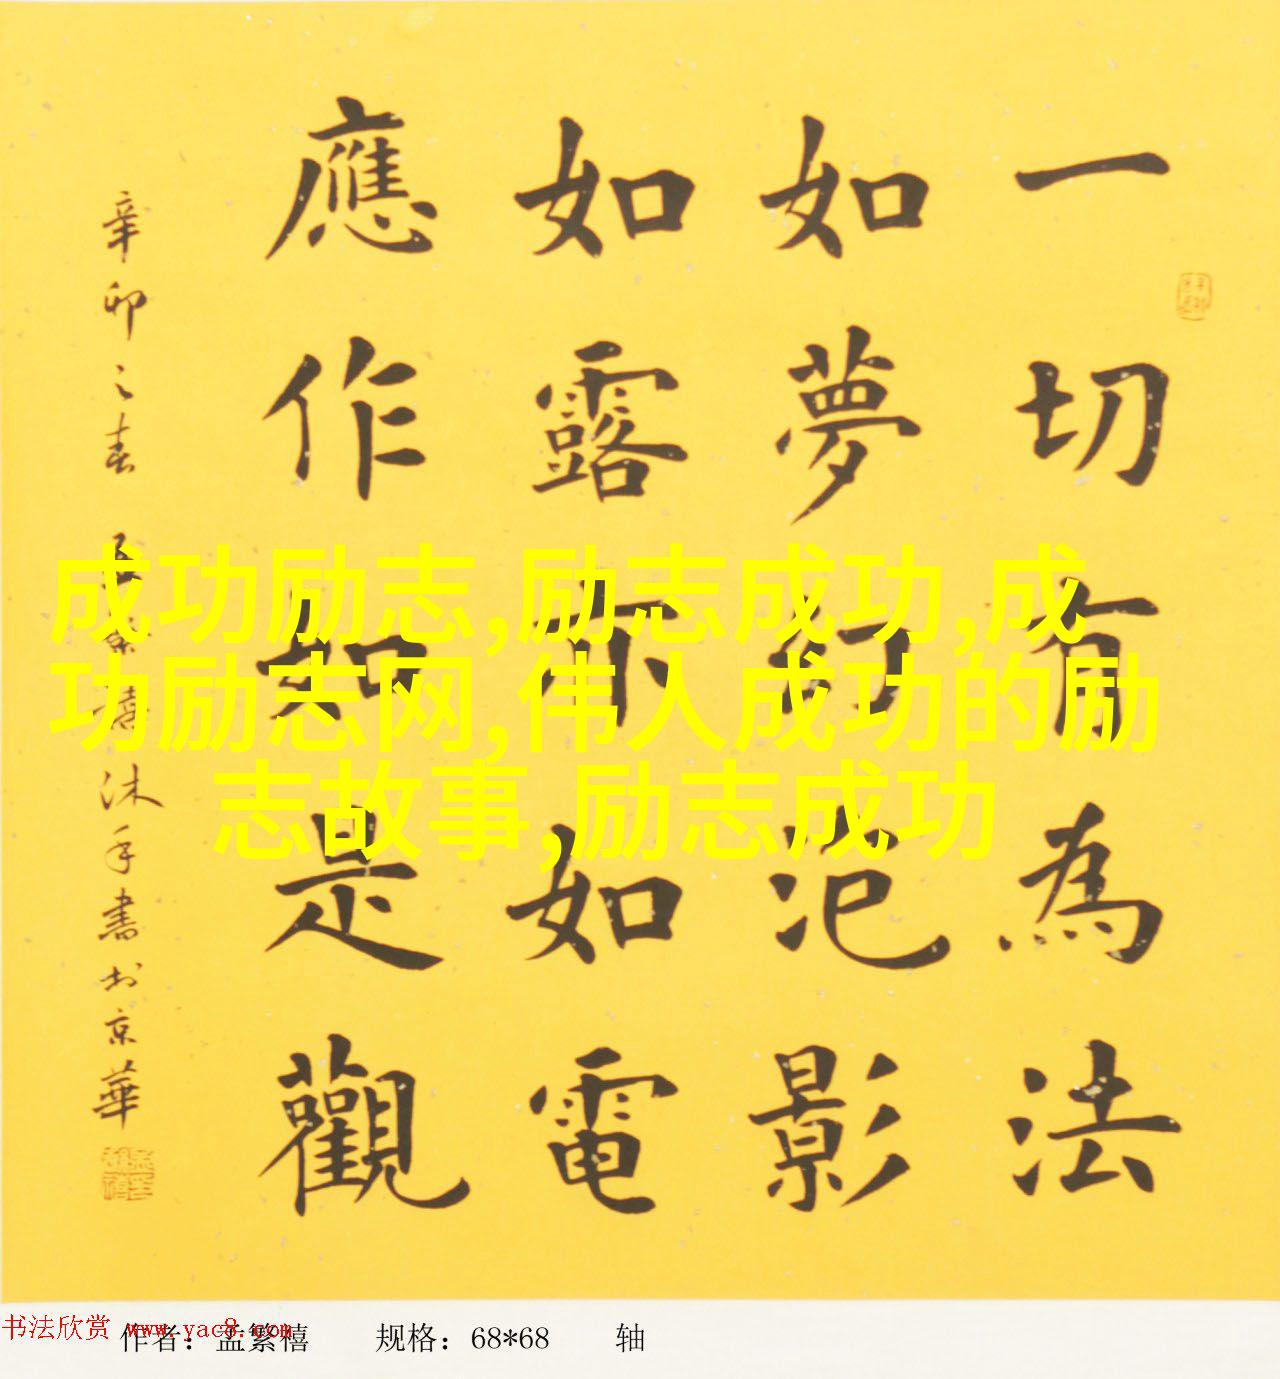 一切有為法
如夢幻泡影
如露亦如電
應作如是觀
辛卯之春 孟繁禧沐手書於京華
成功励志,励志成功,成
功励志网,伟人成功的励
志故事,励志成功
书法欣赏 www.yac8.com
作者：孟繁禧 规格：68*68 轴